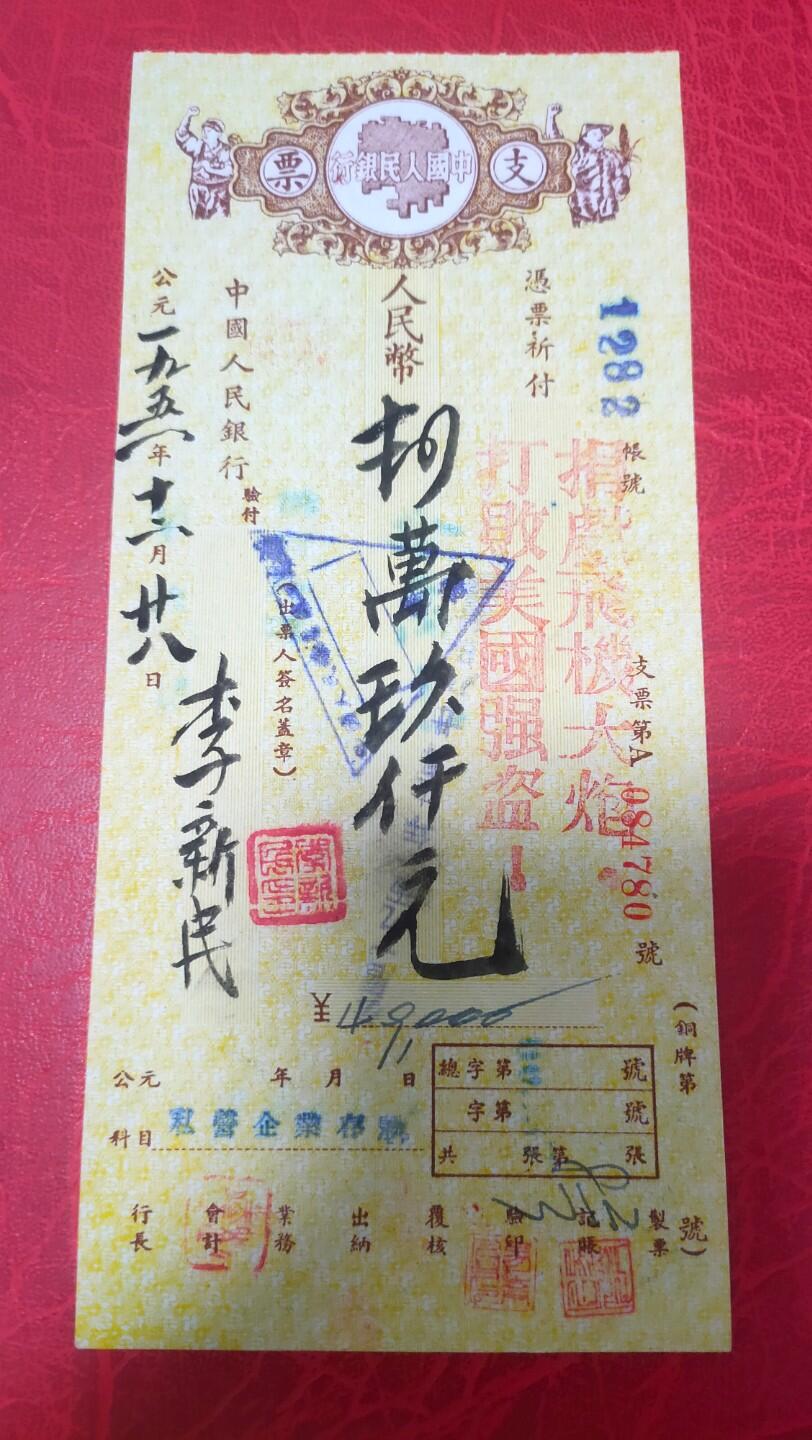 支票
中國人民銀行
(銅牌第 號)
1282 帳號
支票第A 084780 號
憑票祈付
捐獻飛機大炮
打敗美國强盗!
人民幣肆萬玖仟元
¥49,000
中國人民銀行 驗付
(出票人簽名蓋章)
李新民
公元一九五一年十二月廿八日
公元 年 月 日
科目 私營企業存款
總字第 號
字第 號
共 張第 張
行長 會計 業務 出納 覆核 驗印 記賬 製票